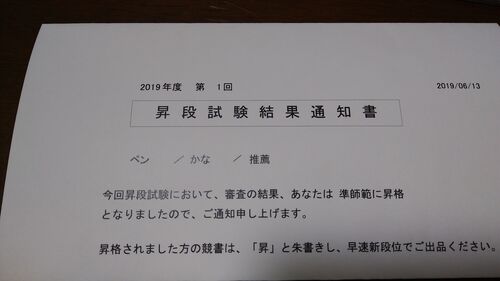 2019年度　第　1回
2019/06/13
昇段試験結果通知書
ペン　／かな　／推薦
今回昇段試験において、審査の結果、あなたは 準師範に昇格
となりましたので、ご通知申し上げます。
昇格されました方の競書は、「昇」と朱書きし、早速新段位でご出品ください。